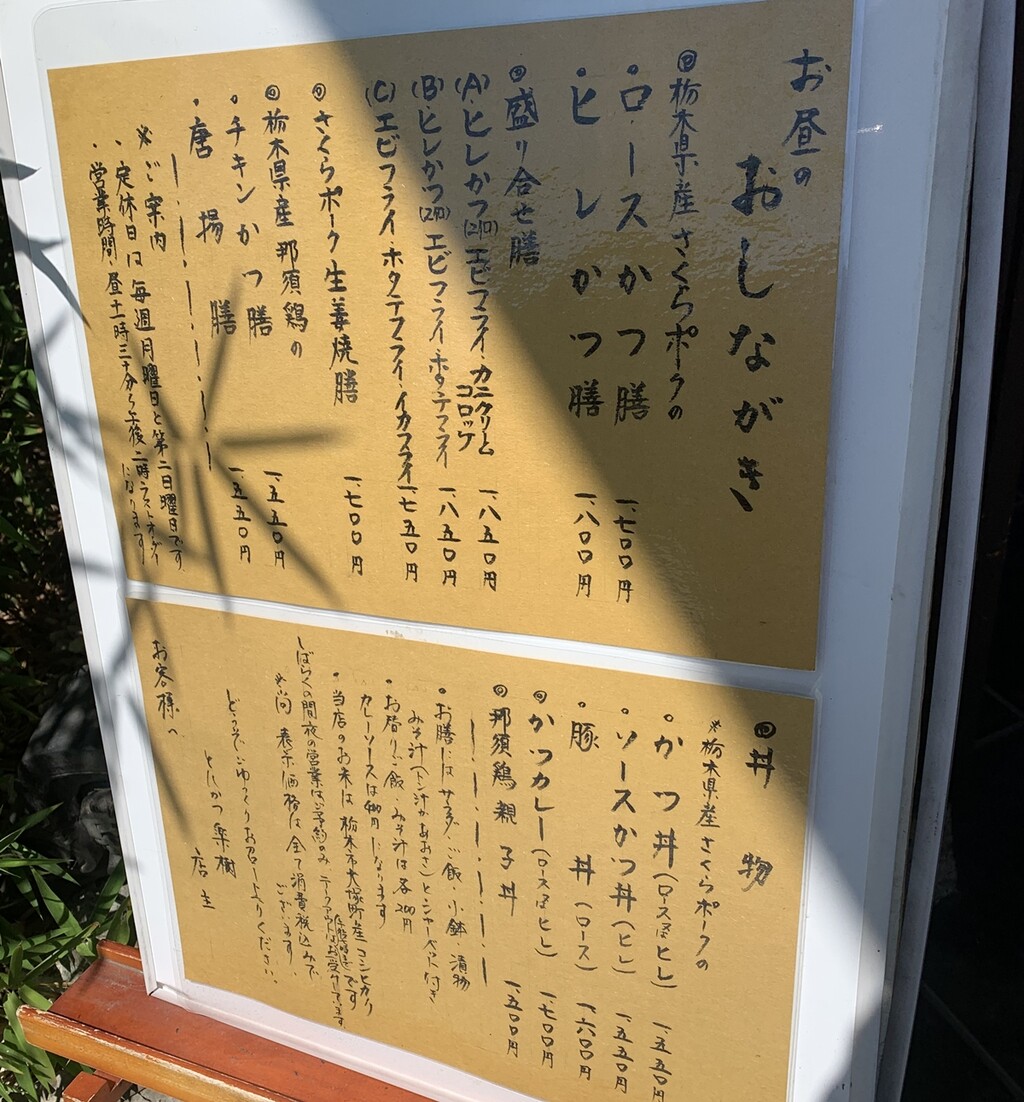 お昼の
おしながき
◎栃木県産さくらポークの
・ロースかつ膳 一、七〇〇円
・ヒレかつ膳 一、八〇〇円
◎盛り合せ膳
(A)ヒレかつ(2個)エビフライ・カニクリームコロッケ 一、八五〇円
(B)ヒレかつ(2個)エビフライ・ホタテフライ 一、八五〇円
(C)エビフライ・ホタテフライ・イカフライ 一、七五〇円
◎さくらポーク生姜焼膳 一、七〇〇円
◎栃木県産那須鶏の
・チキンかつ膳 一、五五〇円
・唐揚膳 一、五五〇円
※ご案内
・定休日は毎週月曜日と第二日曜日です
・営業時間 昼十一時三十分から午後二時ラストオーダー
になります
◎丼物
※栃木県産さくらポークの
・かつ丼(ロース又はヒレ) 一、五五〇円
・ソースかつ丼(ヒレ) 一、五五〇円
・豚丼(ロース) 一、六〇〇円
◎かつカレー(ロース又はヒレ) 一、七〇〇円
◎那須鶏親子丼 一、五〇〇円
・お膳にはサラダ・ご飯・小鉢・漬物
みそ汁(トン汁かあおさ)とシャーベット付き
・お替りご飯・みそ汁は各200円
カレーソースは 円になります
・当店のお米は栃木市大塚町産コシヒカリです
しばらくの間夜の営業はご予約のみ テークアウトはお受けしています
※尚 表示価格は全て消費税込みで
ございます。
どうぞごゆっくりお召し上りください。
とんかつ 楽樹
店主
お客様へ